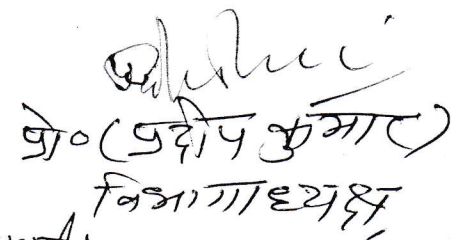 प्रो० (प्रदीप कुमार)
विभागाध्यक्ष